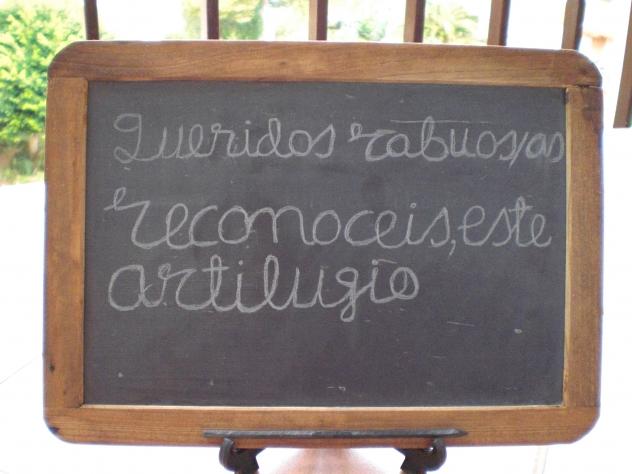 Queridos rabuos/as
reconoceis, este
artilugio